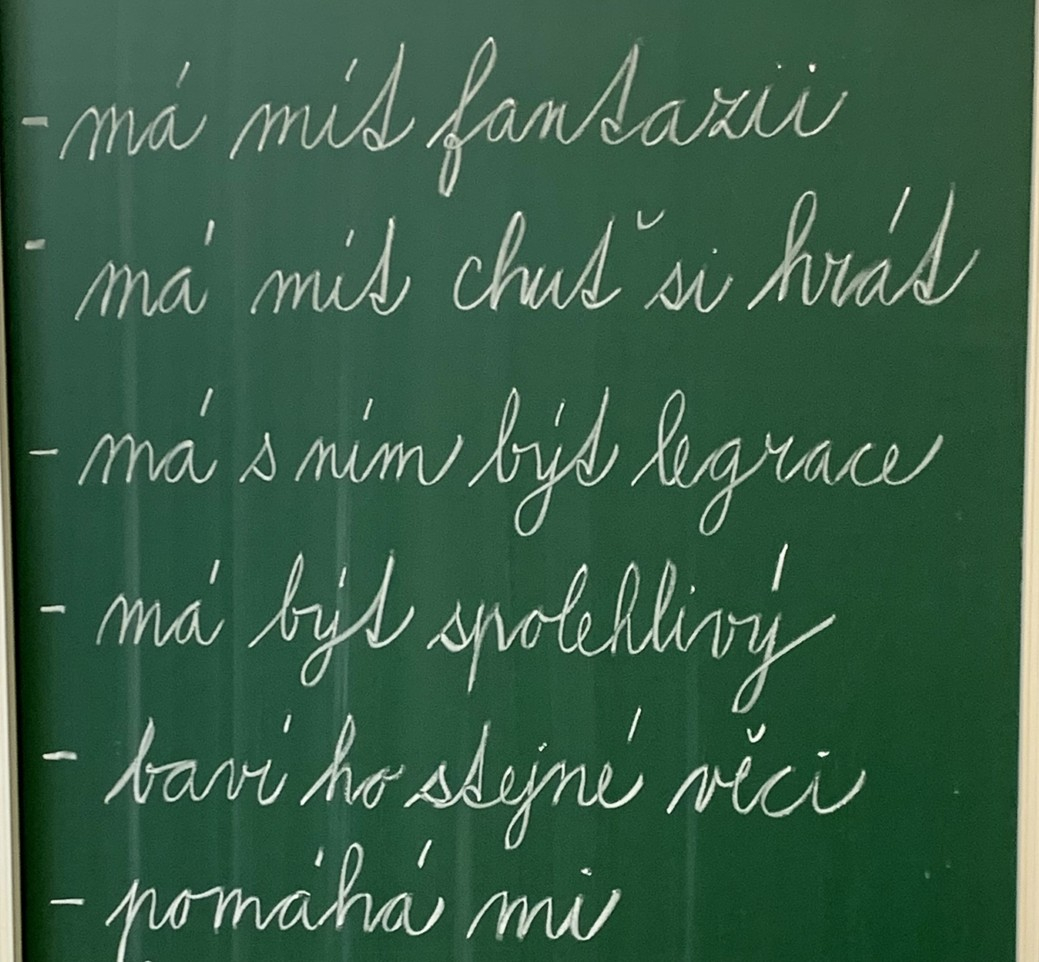 - má mít fantazii
- má mít chuť si hrát
- má s ním být legrace
- má být spolehlivý
- baví ho stejné věci
- pomáhá mi